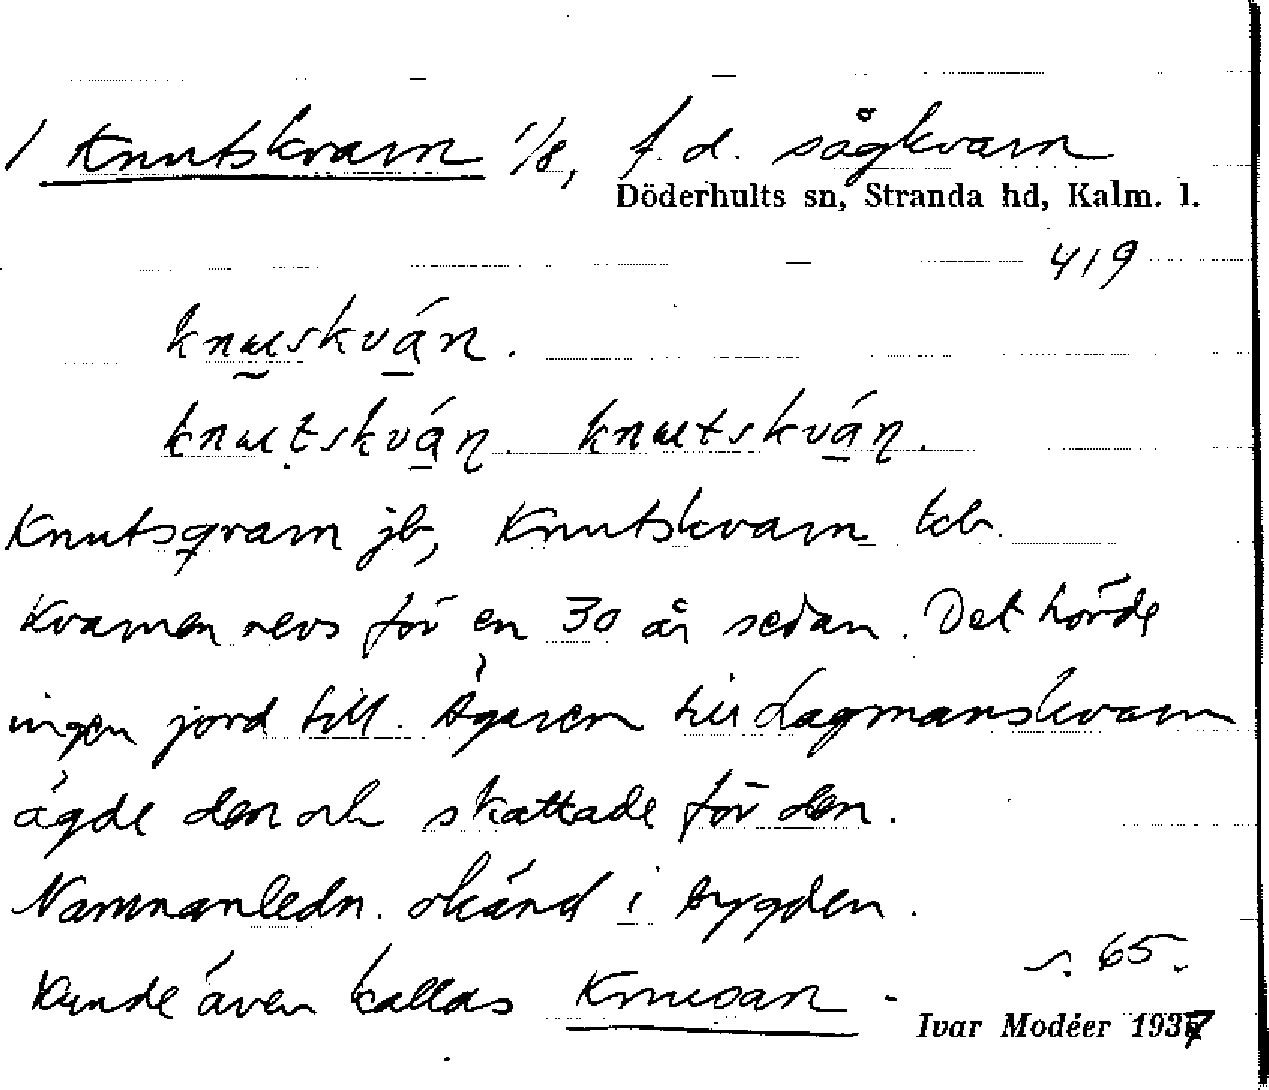 1 Knutskvarn 1/8, f.d. sågkvarn
Döderhults sn, Stranda hd, Kalm. l.
419
knɯskván.
knɯtskván. knɯtskván.
Knutsqvarn jb, Knutskvarn tcb.
Kvarnen revs för en 30 år sedan. Det hörde
ingen jord till. Ägaren till Lagmanskvarn
ägde den och skattade för den.
Namnanledn. okänd i bygden.
s. 65.
Kunde även kallas Knusan.
Ivar Modéer 1937